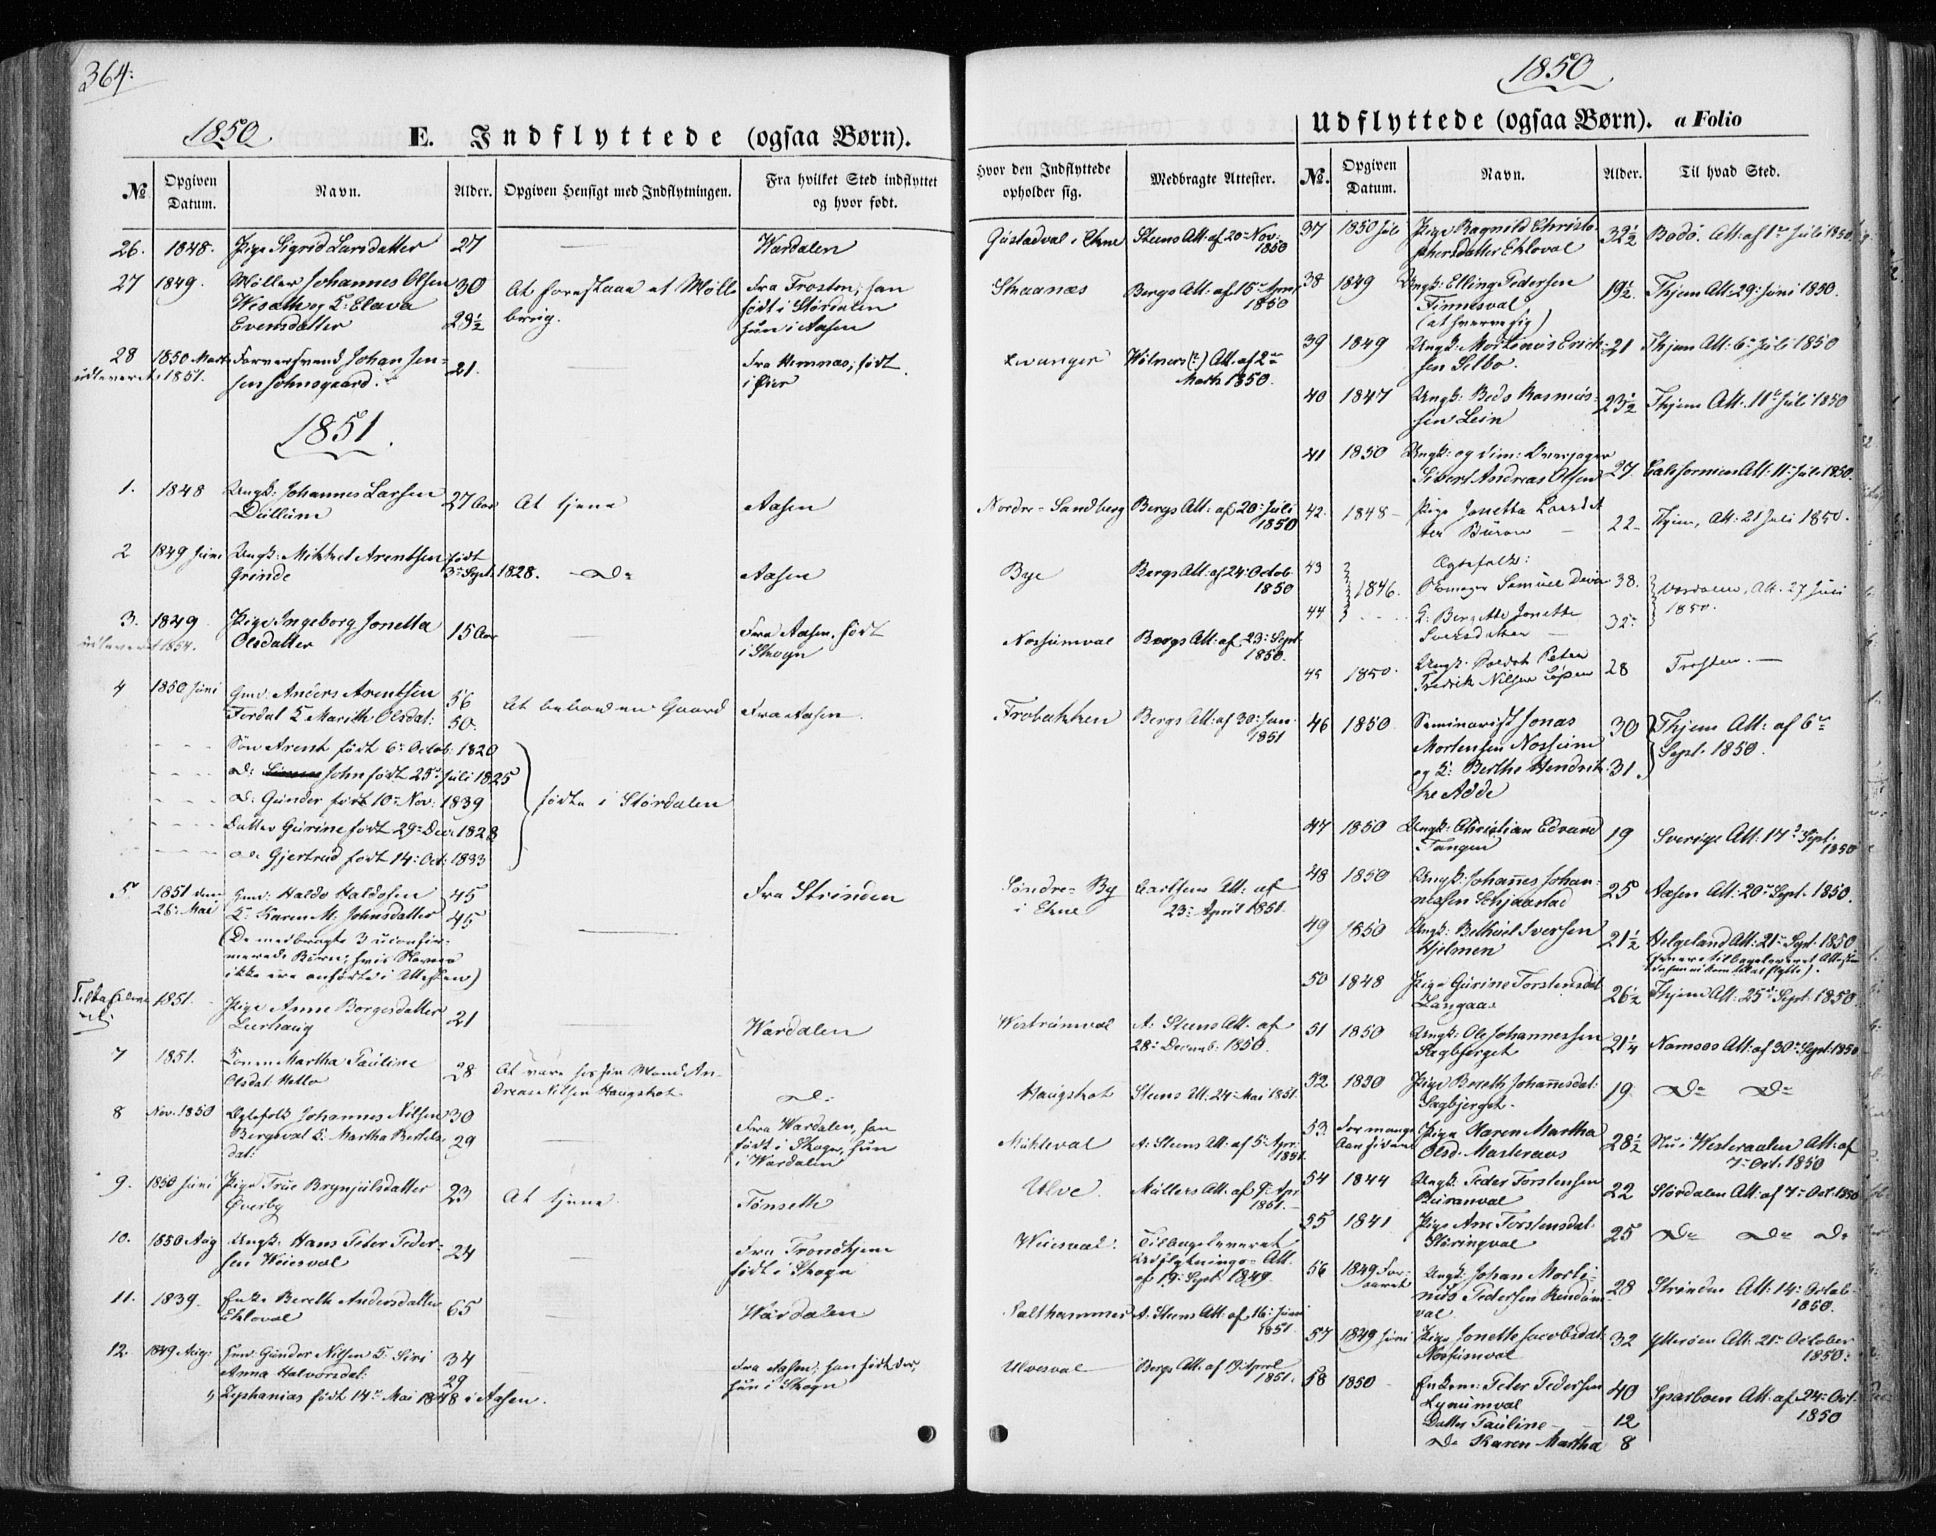 364.
1850.
E. Indflyttede (ogsaa Børn).
№
Opgiven Datum.
Navn.
Alder.
Opgiven Hensigt med Indflytningen.
Fra hvilket Sted indflyttet og hvor født.
Hvor den Indflyttede opholder sig.
Medbragte Attester.
26. 1848. Pige Sigrid Larsdatter 27 — Wardalen Gustadval i Ekne Steens Att. af 20de Nov. 1850
27 1849. Møller Johannes Olsen 30 At forestaae et Mølle Fra Frosten, han Skaanæs Bergs Att. af 15de
K: Elava brug. født i Stördalen 1850
Evensdatter 28½ hun i Aasen
28 1850 Marts Farversvend Johan Jen- 21. — Fra Hemnæs, født Levanger Att. af 2de
udleveret 1851. sen i Marts 1850.
1851.
1. 1848 Ungk: Johannes Larsen 27 Aar At tjene Aasen Nordre-Sandberg Bergs Att: af 20de Juli
Dullum 1850
2 1849 Juni Ungk: Mikkel Arentsen født Aasen Bye Bergs Att: af 24 Octob.
Grinde 3de Sept. 1828. — Do 1850
3. 1849. Pige Ingeborg Jonetta 15 Aar — Fra Aasen, født Nossumval Bergs Att: af 23de Sept
udleveret 1854. Olsdatter i Skogn 1850.
4 1850 Juni Gmd: Anders Arentsen 56 At beboe en Gaard Fra Aasen. Frobakken Bergs Att: af 30: Jan.
K. Marith Olsdat: 50. 1851
Søn Arent født 6te Octob: 1820
D: John født 25de Juli 1825
D: Gunder født 10de Nov: 1839 fødte i Stördalen
Datter Gurine født 29de Dec: 1828
D: Gjertrud født 14: Oct: 1833
5 1851 den Gmd: Haldo Haldosen 45 Fra Strinden Søndre-By Carstens Att: af
26: Mai K: Karen M. Johnsdatter 45 — i Ekne 23de April 1851.
(De medbragte 3 uconfir-
merede Børn, hvis Navne
ikke ere anførte i Attesten)
1851. Pige Anne Borgesdatter 21 — Wardalen Westrumval A: Steens Att. af
Leerhaug 28de Decemb: 1850.
7 1851. Konen Martha Pauline 28 At være hos sin Mand An- Do Haugskot Steens Att. 24de Mai 1851.
Olsdat. dreas Nilsen Haugskot
8 Nov. 1850 Egtefolk Johannes Nilsen 30 Fra Wardalen, han A: Steens Att. af 5te Apr:
Bergsval K: Martha 29 — født i Skogn, hun 1851.
dat: i Wardalen
9. 1850 Juni Pige True Brynjulsdatter 23 At tjene Tönseth Ulve. Müllers Att. af Apr.
Øverby 1851.
10. 1850 Aug Ungk: Hans Peter Peder- 24 — Fra Trondhjem Weiesval. Tilbageleveret
sen Weiesval født i Skogn Udflytnings-Att.
af 19: Sept. 1849.
11. 1839. Enke Bereth Andersdatter 65 — Wardalen Salthammer A: Steens Att. af 16: Juni
Ekloval 1851.
12. 1849 Aug: Gmd: Gunder Nilsen K: Siri 34 Fra Aasen, han født der, Ulvesval Bergs Att. af 19 April
Anna Halvorsdat: 29 hun i Skogn 1851.
" Zephanias født 14de Mai 1848 i Aasen.
1850
Udflyttede (ogsaa Børn). a Folio
№.
Opgiven Datum.
Navn.
Alder.
Til hvad Sted.
37 1850 Juli Pige Ragnild Christo- 32½ Bodö. Att. af 1ste Juli 1850
phersdatter Ekloval
38 1849 Ungk: Elling Pedersen 19½. Thjem Att: 29de Juni 1850.
Finnesval
(at hverve sig)
39 1849 Ungk: Mortinus Erik- 21 Thjem Att: 6te Juli 1850
sen Selbo.
40 1847 Ungk: Rasmus- 23½ Thjem Att. 11te Juli 1850
sen Lein
41 1850 Ungk: og dim: Overjæger 27. Californien Att: 11te Juli 1850.
Sivert Andreas Olsen
42. 1848 Pige Jonetta Larsdat- 22 Thjem, Att: 21 Juli 1850.
ter
43 Egtefolk:
1846. Samuel 38. Wardalen, Att. 27 Juli
44 K: Jonette 32 1850.
Iversdatter
45 1850. Ungk: Soldat Peter 28 Frosten.
Fredrik Nilsen
46 1850 Seminarist Jonas 30 Thjem Att: af 6te
Mortensen Nossum Sept. 1850.
og K: Berthe Hendrik- 31.
ke Adde
47 1850 Ungk: Christian Edvard 19 Sverige Att: 17de Sept.
Tangen 1850
48 1850 Ungk: Johannes Johan- 25 Aasen Att. 20de Sept. 1850.
nessen
49 1850 Ungk: Bethuel Iversen 21½ Helgeland Att: 21de Sept. 1850
Hjelmen
50 1848 Pige Gurine Torstensdat. 26½ Thjem Att: 25de Sept: 1850
Langaas
51 1850 Ungk: Ole Johannessen 21¼ Namsos Att: af 30de Sept: 1850
Sagbjerget
52 1850 Pige Bereth Johannesdat: 19. Do Do
Sagbjerget.
53. For mange Pige Karen Martha 28½ Nu i Westeraalen Att: af
Aar siden Olsd. 7de Oct. 1850
54 1844 Ungk: Peder Torstensen 22 Stördalen Att: af 7de Oct. 1850
55 1841 Pige Ane Torstensdat. 25 Do Do Do
56 1849 Ungk: Johan Morti- 28 Strinden Att: 14: Octob.
nus Pedersen 1850.
val
57 1849 Juni Pige Jonette Jacobsdat. 32 Ytterøen Att. 21de October
Nossumval 1850.
58 1850 Enkem: Peter Pedersen 40 Sparboen Att: af 24de Oct.
Lynumval 1850
Datter Pauline 12
Do Karen Martha 8